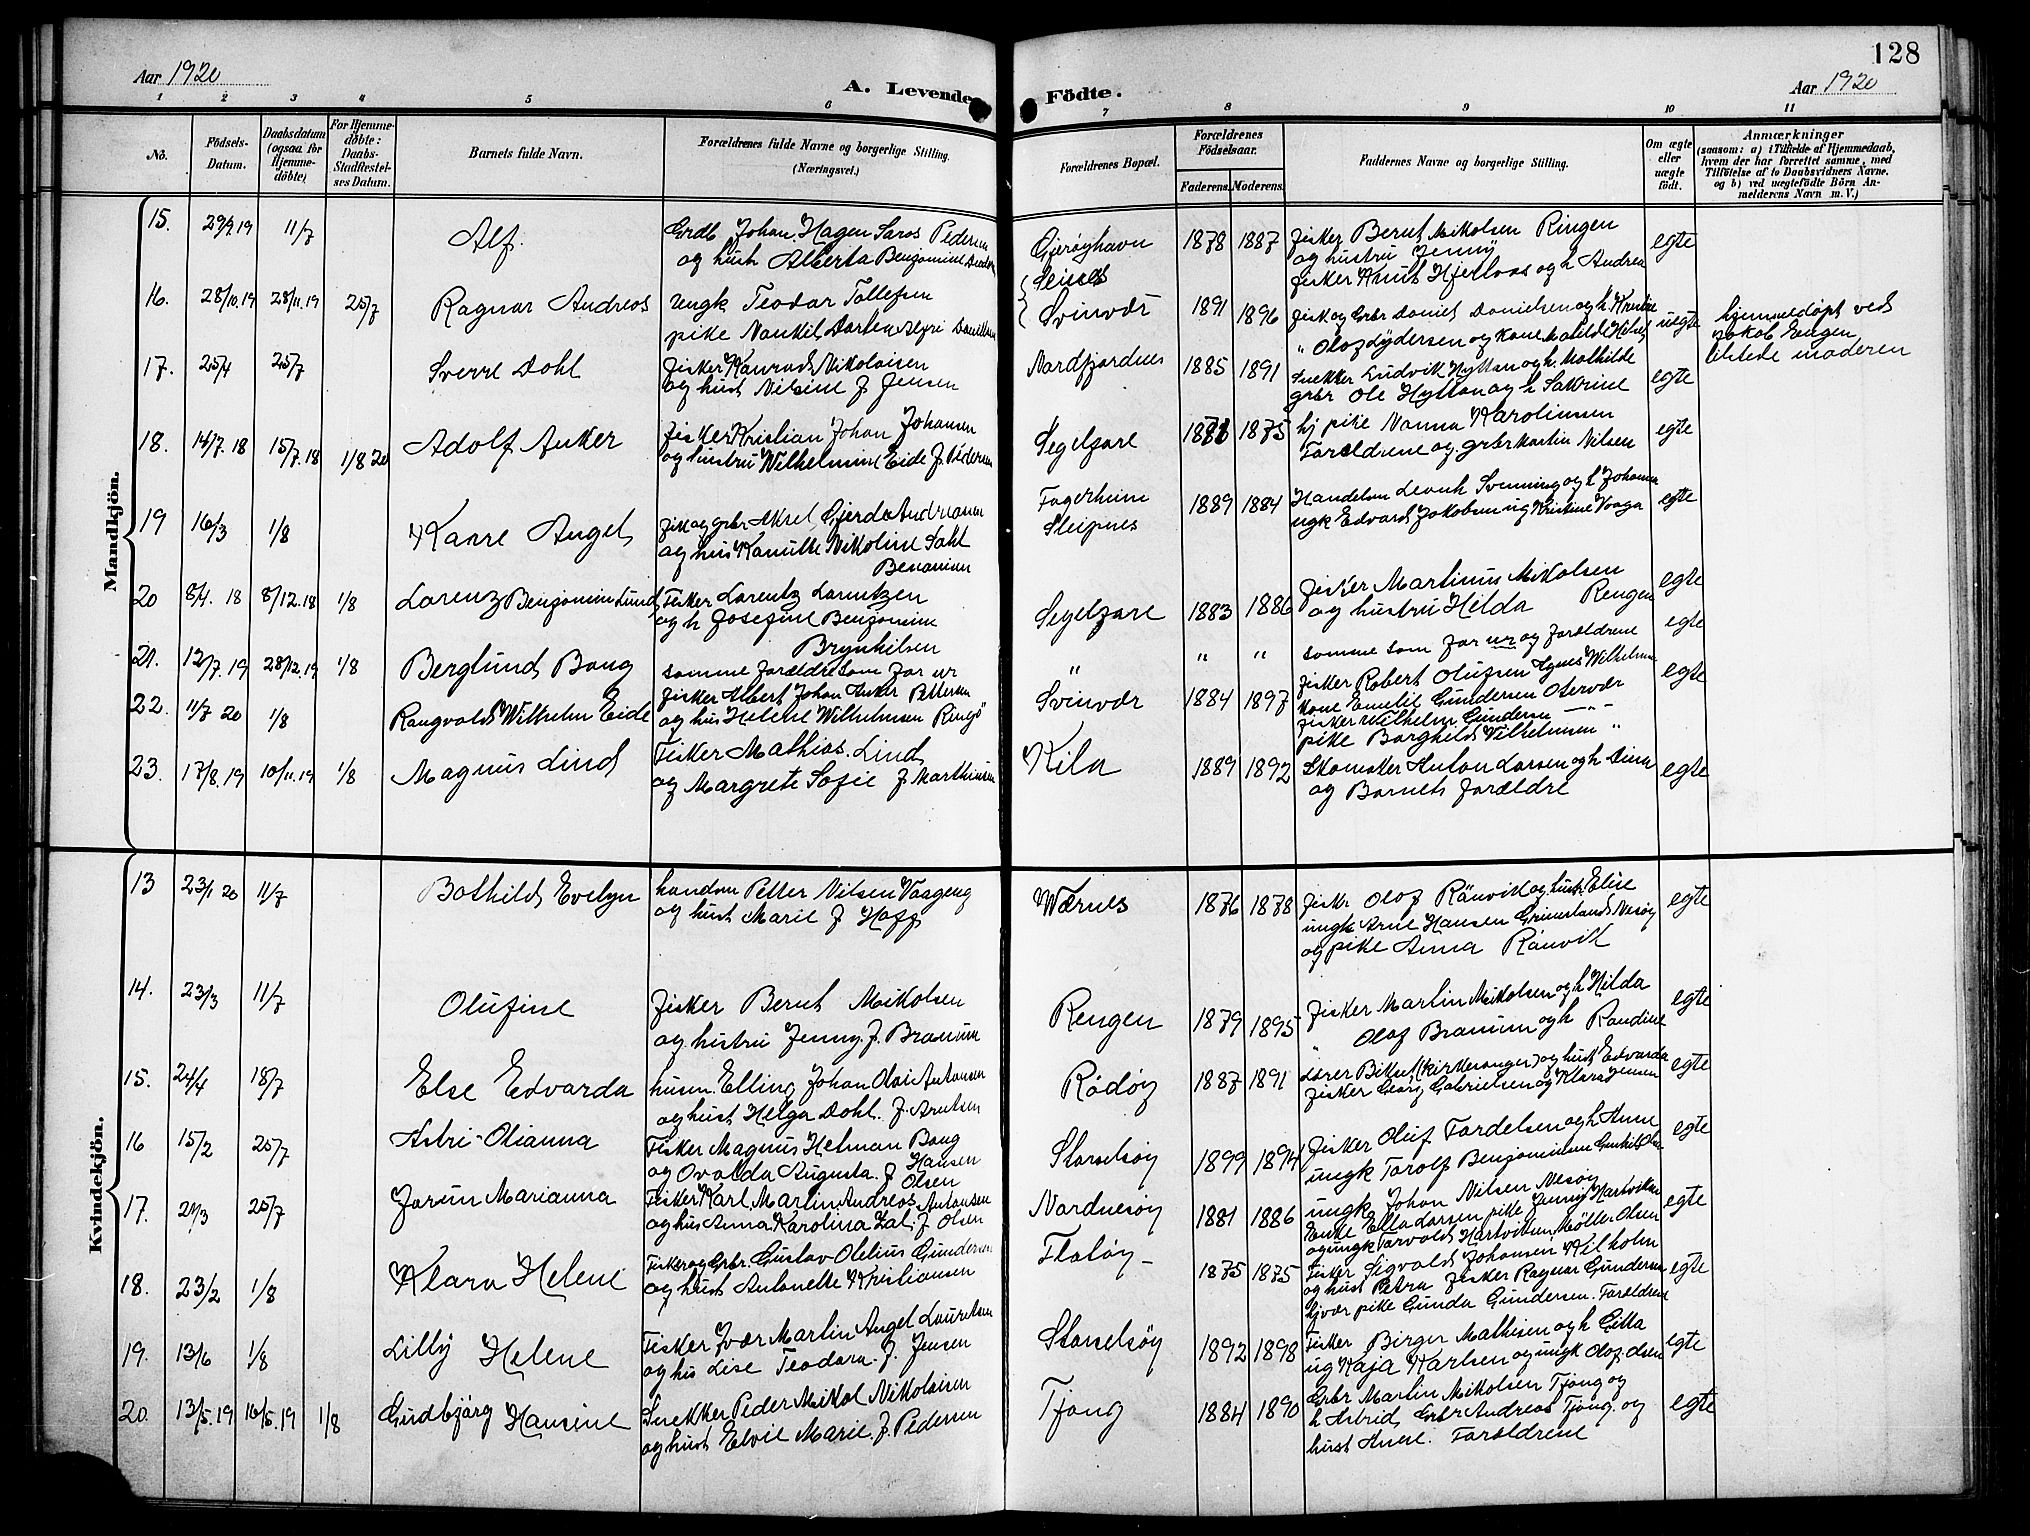 128
Aar 1920
A. Levende Födte.
Aar 1920
1 2 3 4 5 6 7 8 9 10 11
No.
Födsels-Datum.
Daabsdatum (ogsaa for Hjemme-döbte)
For Hjemme-döbte: Daabs-Stadfæstel-ses Datum.
Barnets fulde Navn.
Forældrenes fulde Navne og borgerlige Stilling.
(Næringsvei.)
Forældrenes Bopæl.
Forældrenes Födselsaar.
Faderens. Moderens.
Faddernes Navne og borgerlige Stilling.
Om ægte eller uægte födt.
Anmærkninger
(saasom: a) i Tilfælde af Hjemmedaab,
hvem der har forrettet samme, med
Tilföielse af to Daabsvidners Navne.
og b) ved uægtefödte Börn An-
melderens Navn m. V.)
Mandkjön.
15. 29/9.19 11/7 Alf. Grdb Johan Hagen Saros Pedersen
og hust Alberta Benjamine
Gjerøyhavn 1878 1887 fisker Bernt Mikolsen Ringen
og hustru Jenny
fisker Knut og h Andrea
egte
16. 28/10.19 28/11.19 25/7 Ragnar Andreas ungk Teodor Tollefsen
pike
Svinvær 1891 1896 fisk og Grbr Daniel Danielsen og h Kristine
" Olaf Lydersen og Kone Matilde
uegte hjemmedøpt ved
Jakob Engen
tilstede moderen
17. 25/4 25/7 Sverre Dahl fisker Konrad Nikolaisen
og hust Nilsine f. Jensen
Nordfjordnes 1885 1891 Snekker Ludvik Hyttan og h. Mathilde
grbr Ole Hyttan og h Sakrine
egte
18. 14/7.18 15/7.18 1/8 20 Adolf Anker fisker Kristian Johan Johansen
og hustru Wilhelmine Eide f. Pedersen
Segelfare 1875 hj pike Nanna Karolinsen
Foreldrene og grbr Martin Nilsen
egte
19 16/3 1/8 Kaare Angel fisk og grbr Aksel Gjerda Andreassen
og hus Kamilla Nikoline Dahl
Benjaminsen
Fagerheim
Sleipnes
1889 1884 Handelsm Leonh Svenning og h Johanna
ungk Edvard Jakobsen og Kristine Vaaga
egte
20 8/4.18 8/12.18 1/8 Lorenz Benjamin Lund Fisker Lorentz Lorntzen
og h Josefine Benjamine
Brynhilsen
Segelfare 1883 1886 fisker Martinus Mikolsen
og hustru Hilda Rengen
egte
21. 12/7.19 28/12.19 1/8 Berglund Bang samme forældre som for nr
" " " samme som for nr og foreldrene
egte
22. 11/7 20 1/8 Rangvald Wilhelm Eide fisker Albert Johan Anker Pettersen
og hus Helene Wilhelmsen Ringø
Svinvær 1884 1897 fisker Robert Olufsen Agnes Wilhelmsen
Kone Emelie Gundersen Otervær
fisker Wilhelm Gundersen — " -
pike Borghild Wilhelmsen "
egte
23. 17/8.19 10/11.19 1/8 Magnus Lind Fisker Mathias Lind
og Margrete Sofie f. Marthinsen
Kila 1889 1892 Skomaker Anton Larsen og h Dina
og Barnets forældre
egte
Kvindekjön.
13 23/1 20 11/7 Bothild Evelyn handsm Petter Nilsen Vaageng
og hust Marie f Hoff
Wærnes 1876 1878 fisker Olof Rånvik og hust. Elise
ungk Arne Hansen Grimsland Nesøy
og pike Anna Rånvik
egte
14. 23/3 11/7 Olufine fisker Bernt Mikolsen
og hustru Jenny f. Bramum
Rengen 1879 1895 fisker Martin Mikolsen og h Hilda
" Olaf Bramum og h Randine
egte
15. 24/4 18/7 Else Edvarda husm. Elling Johan Olai Antonsen
og hust Helga Dahl. f. Arntsen
Rödöy 1887 1891 Lærer Bikset (kirkesanger) og hust Edvarda
fisker Georg Gabrielsen og Klara Jensen
egte
16 15/2 25/7 Astri-Olianna Fisker Magnus Helman Bang
og Ovalda Augusta f Hansen
Olsen
Storselsøy 1899 1894 fisker Oluf Tordelsen og h Anne
ungk Torolf Benjaminsen
egte
17. 21/3 25/7 Jorun Marianna Fisker Karl Martin Andreas Antonsen
og hus Anna Karolina f Olsen
Nordnesøy 1881 1886 ungk Johan Nilsen Nesøy
Enke Ella Larsen pike Jenny Hartviksen
og ungk Torvald Hartviksen Møller Olsen
egte
18. 23/2 1/8 Klara Helene Fisker og Grbr. Gustav Olelius Gundersen
og hust Antonette Kristiansen
Flatøy- 1875 1875 Fisker Sigvald Johansen Kilholm
og hust Petra fisker Ragnar Gundersen
Svinvær pike Gunda Gundersen. Foreldrene
egte
19. 13/6 1/8 Lilly Helene Fisker Ivær Martin Angel Lauritsen
og hus Lise Teodora f. Jensen
Storselsøy 1892 1898 Fisker Birger Mathisen og h Gitta
ug Kaja Karlsen og ungk Olaf Olsen
egte
20. 13/5.19 16/5.19 1/8 Gudbjörg Hansine Snekker Peder Mikal Nikolaisen
og hust Elvie Marie f. Pedersen
Tjong 1884 1890 Grbr Martin Mikolsen Tjong og
h Astrid, Grbr Andreas Tjong og
hust Anne. Foreldrene
egte